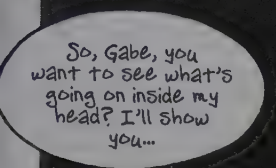 So, Gabe, you
want to see what's
going on inside my
head? I'll show
you...